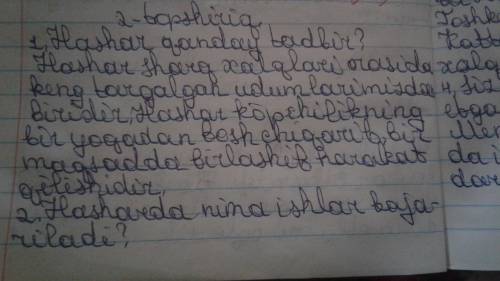 2-topshiriq
1. Hashar qanday tadbir?
Hashar sharq xalqlari orasida
keng tarqalgan udumlarimizdan
biridir, Hashar ko'pchilikning
bir yoqadan bosh chiqarib, bir
maqsadda birlashib harakat
qilishidir.
2. Hasharda nima ishlar baja-
riladi?
Toshk
Katta
xalq
4. siz
da i
dar